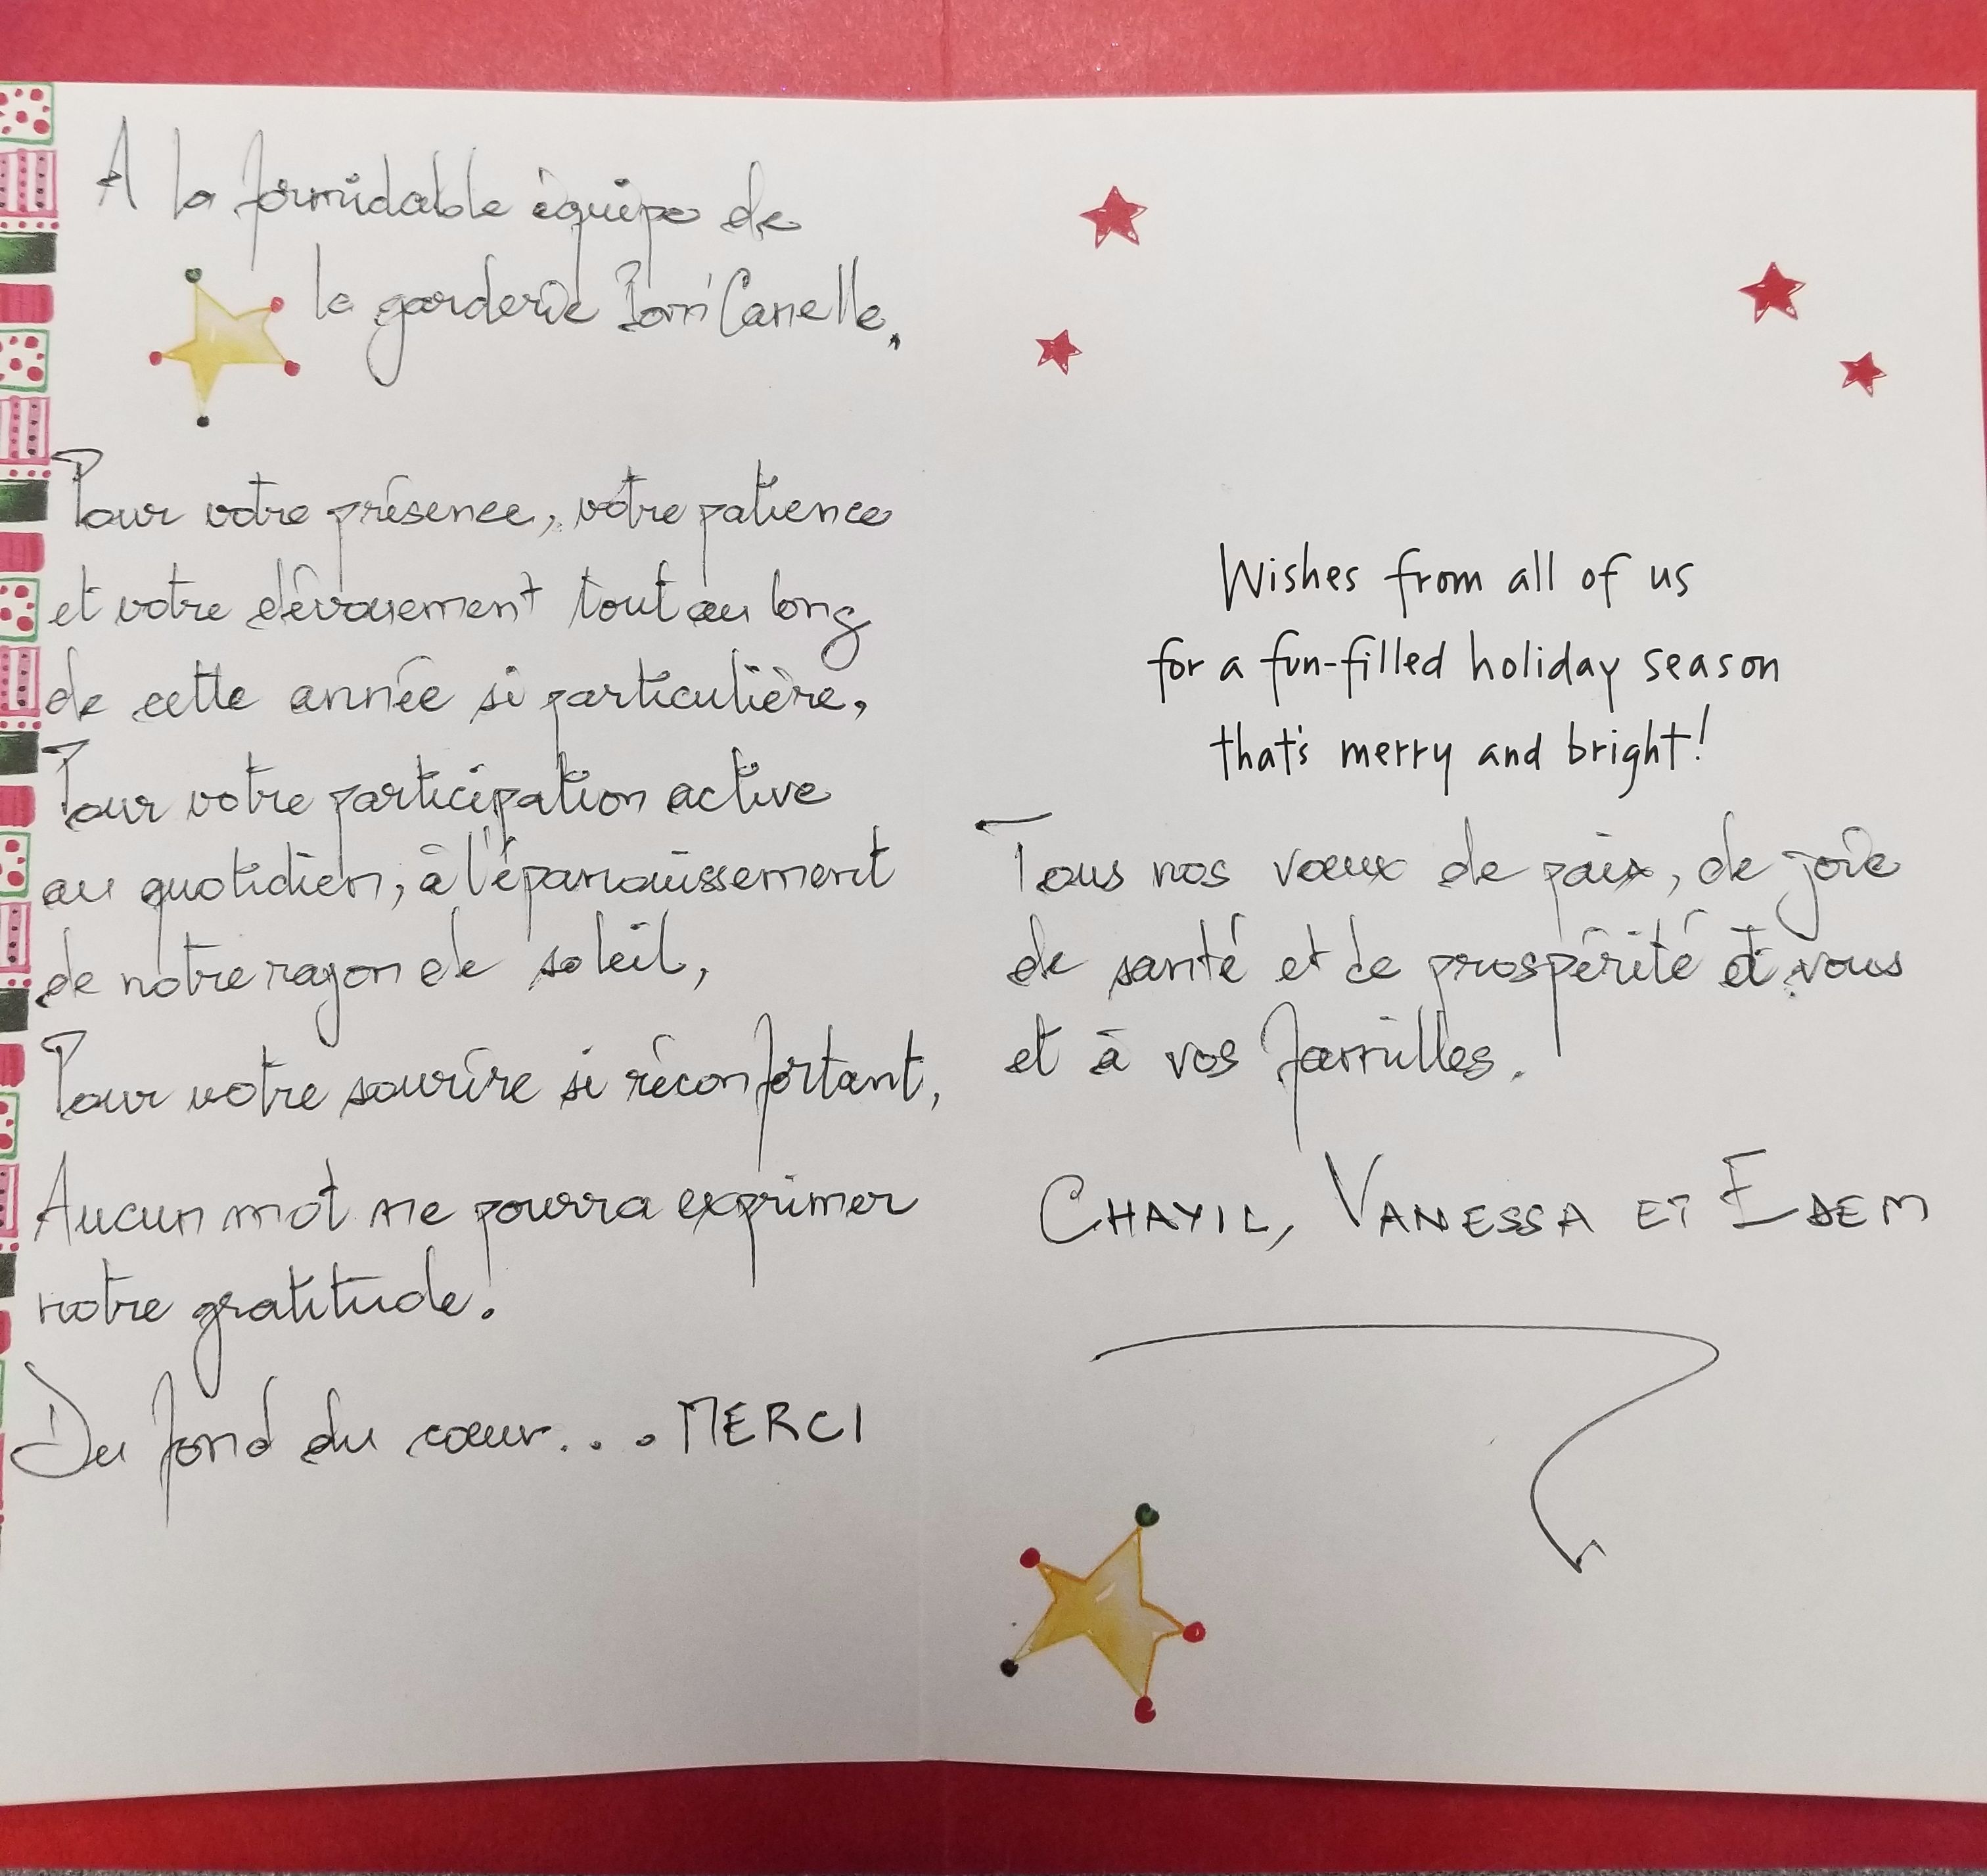 A la formidable équipe de
la garderie Pom'Canelle.
Pour votre présence, votre patience
et votre dévouement tout au long
de cette année si particulière,
Pour votre participation active
au quotidien, à l'épanouissement
de notre rayon de soleil,
Pour votre sourire si réconfortant,
Aucun mot ne pourra exprimer
notre gratitude.
Du fond du cœur... MERCI
Wishes from all of us
for a fun-filled holiday season
that's merry and bright!
Tous nos vœux de paix, de joie
de santé et de prospérité et vous
et à vos familles.
CHAYIL, VANESSA ET EDEM